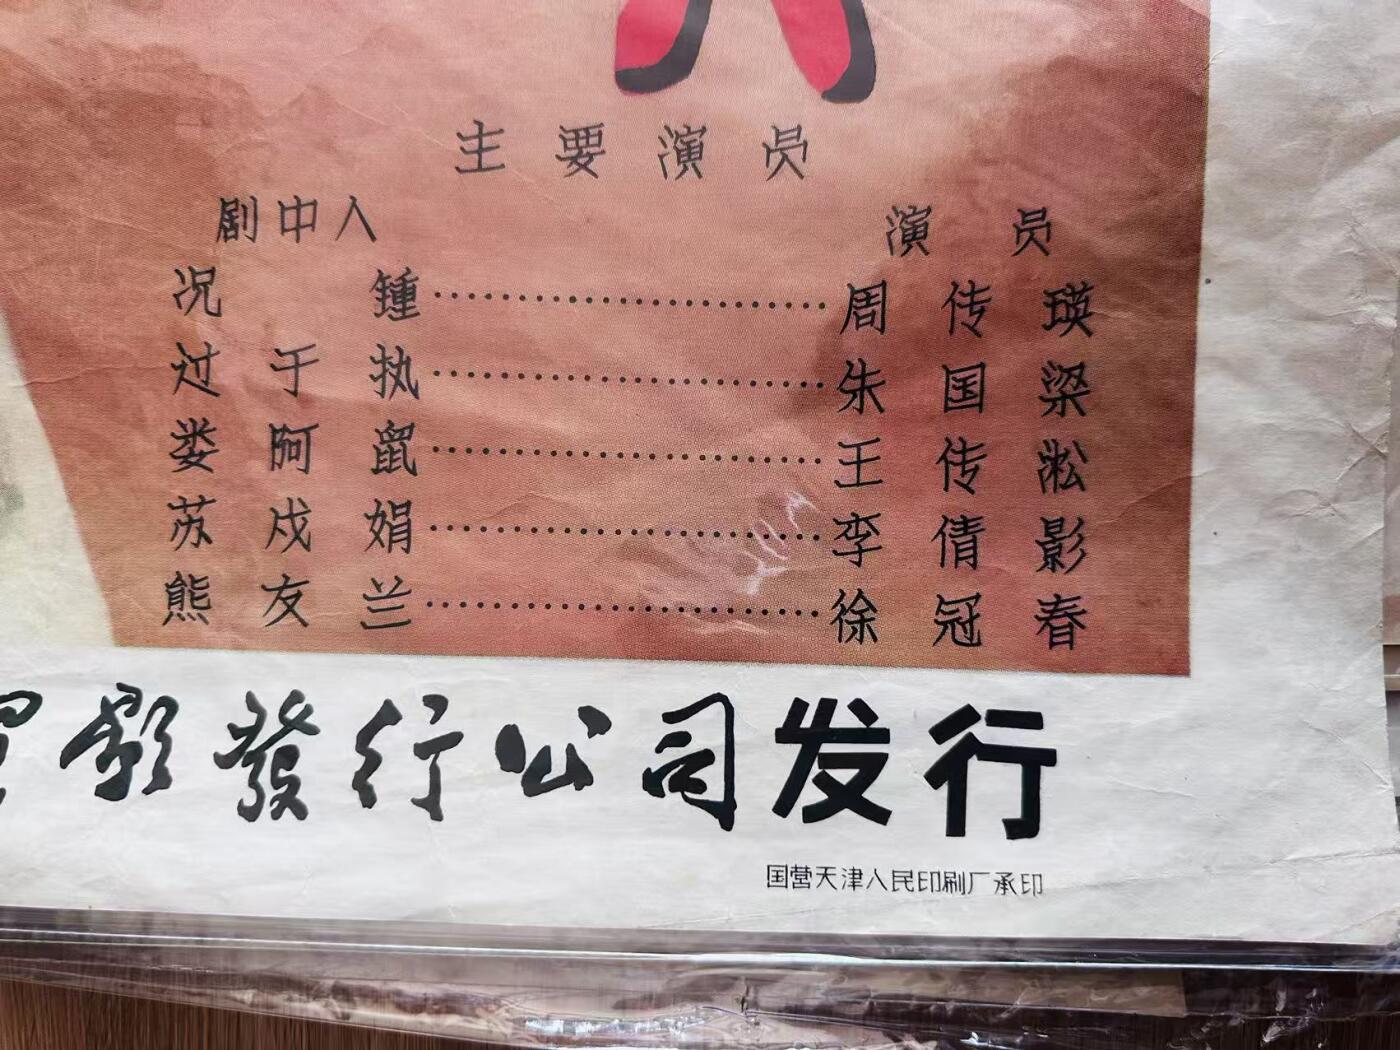 主要演员
剧中人 演员
况锺……………………周传瑛
过于执……………………朱国梁
娄阿鼠……………………王传淞
苏戍娟……………………李倩影
熊友兰……………………徐冠春
影發行公司发行
国营天津人民印刷厂承印